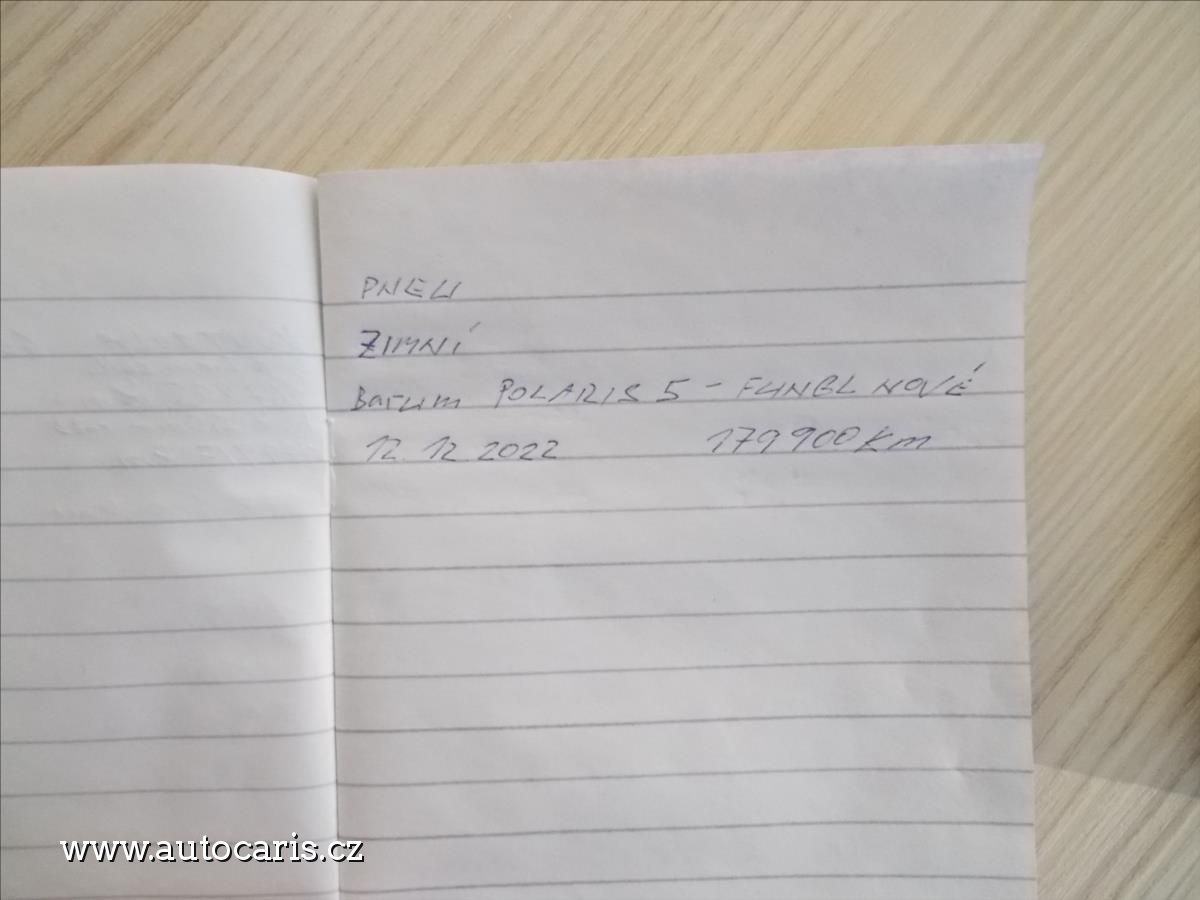 PNEU
ZIMNÍ
Barum POLARIS 5 - FUNGL NOVÉ
12. 12 2022 179 900 Km
www.autocaris.cz